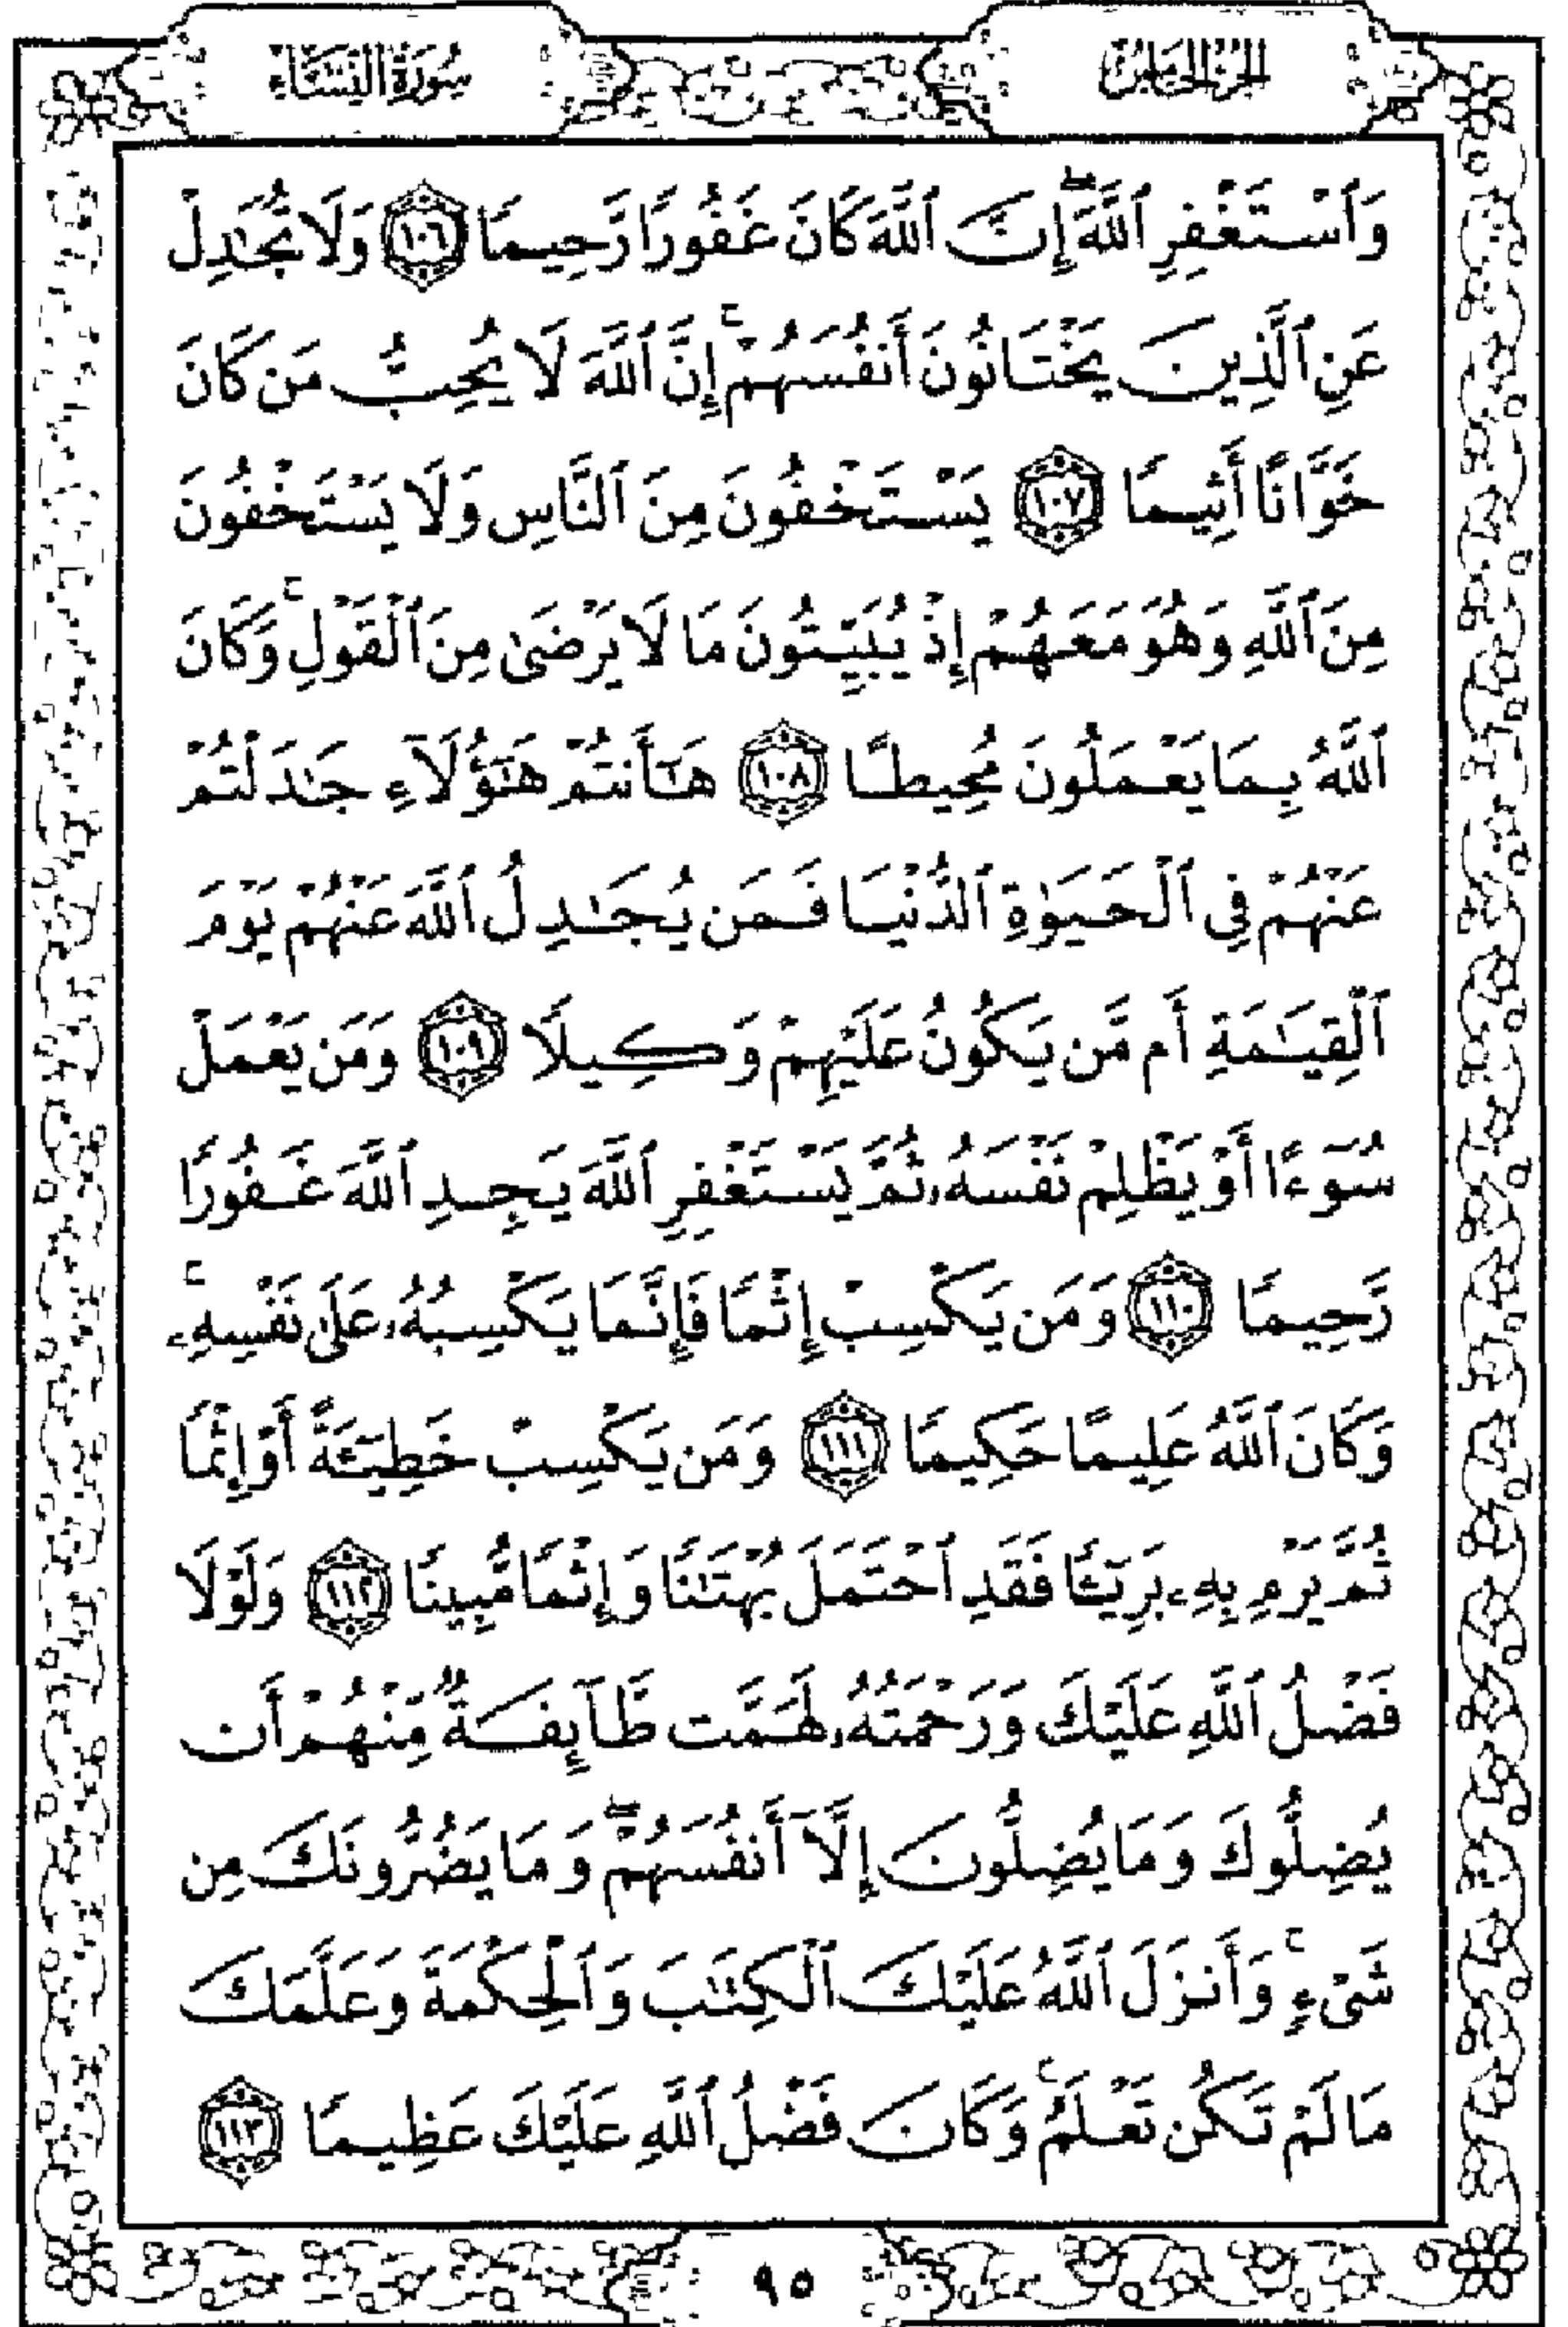 الجزء الخامس
سورة النساء
وَٱسْتَغْفِرِ ٱللَّهَ ۖ إِنَّ ٱللَّهَ كَانَ غَفُورًا رَّحِيمًا ١٠٦ وَلَا تُجَٰدِلْ
عَنِ ٱلَّذِينَ يَخْتَانُونَ أَنفُسَهُمْ ۚ إِنَّ ٱللَّهَ لَا يُحِبُّ مَن كَانَ
خَوَّانًا أَثِيمًا ١٠٧ يَسْتَخْفُونَ مِنَ ٱلنَّاسِ وَلَا يَسْتَخْفُونَ
مِنَ ٱللَّهِ وَهُوَ مَعَهُمْ إِذْ يُبَيِّتُونَ مَا لَا يَرْضَىٰ مِنَ ٱلْقَوْلِ ۚ وَكَانَ
ٱللَّهُ بِمَا يَعْمَلُونَ مُحِيطًا ١٠٨ هَٰٓأَنتُمْ هَٰٓؤُلَآءِ جَٰدَلْتُمْ
عَنْهُمْ فِى ٱلْحَيَوٰةِ ٱلدُّنْيَا فَمَن يُجَٰدِلُ ٱللَّهَ عَنْهُمْ يَوْمَ
ٱلْقِيَٰمَةِ أَم مَّن يَكُونُ عَلَيْهِمْ وَكِيلًا ١٠٩ وَمَن يَعْمَلْ
سُوٓءًا أَوْ يَظْلِمْ نَفْسَهُۥ ثُمَّ يَسْتَغْفِرِ ٱللَّهَ يَجِدِ ٱللَّهَ غَفُورًا
رَّحِيمًا ١١٠ وَمَن يَكْسِبْ إِثْمًا فَإِنَّمَا يَكْسِبُهُۥ عَلَىٰ نَفْسِهِۦ ۚ
وَكَانَ ٱللَّهُ عَلِيمًا حَكِيمًا ١١١ وَمَن يَكْسِبْ خَطِيٓـَٔةً أَوْ إِثْمًا
ثُمَّ يَرْمِ بِهِۦ بَرِيٓـًٔا فَقَدِ ٱحْتَمَلَ بُهْتَٰنًا وَإِثْمًا مُّبِينًا ١١٢ وَلَوْلَا
فَضْلُ ٱللَّهِ عَلَيْكَ وَرَحْمَتُهُۥ لَهَمَّت طَّآئِفَةٌ مِّنْهُمْ أَن
يُضِلُّوكَ وَمَا يُضِلُّونَ إِلَّآ أَنفُسَهُمْ ۖ وَمَا يَضُرُّونَكَ مِن
شَىْءٍ ۚ وَأَنزَلَ ٱللَّهُ عَلَيْكَ ٱلْكِتَٰبَ وَٱلْحِكْمَةَ وَعَلَّمَكَ
مَا لَمْ تَكُن تَعْلَمُ ۚ وَكَانَ فَضْلُ ٱللَّهِ عَلَيْكَ عَظِيمًا ١١٣
٩٥